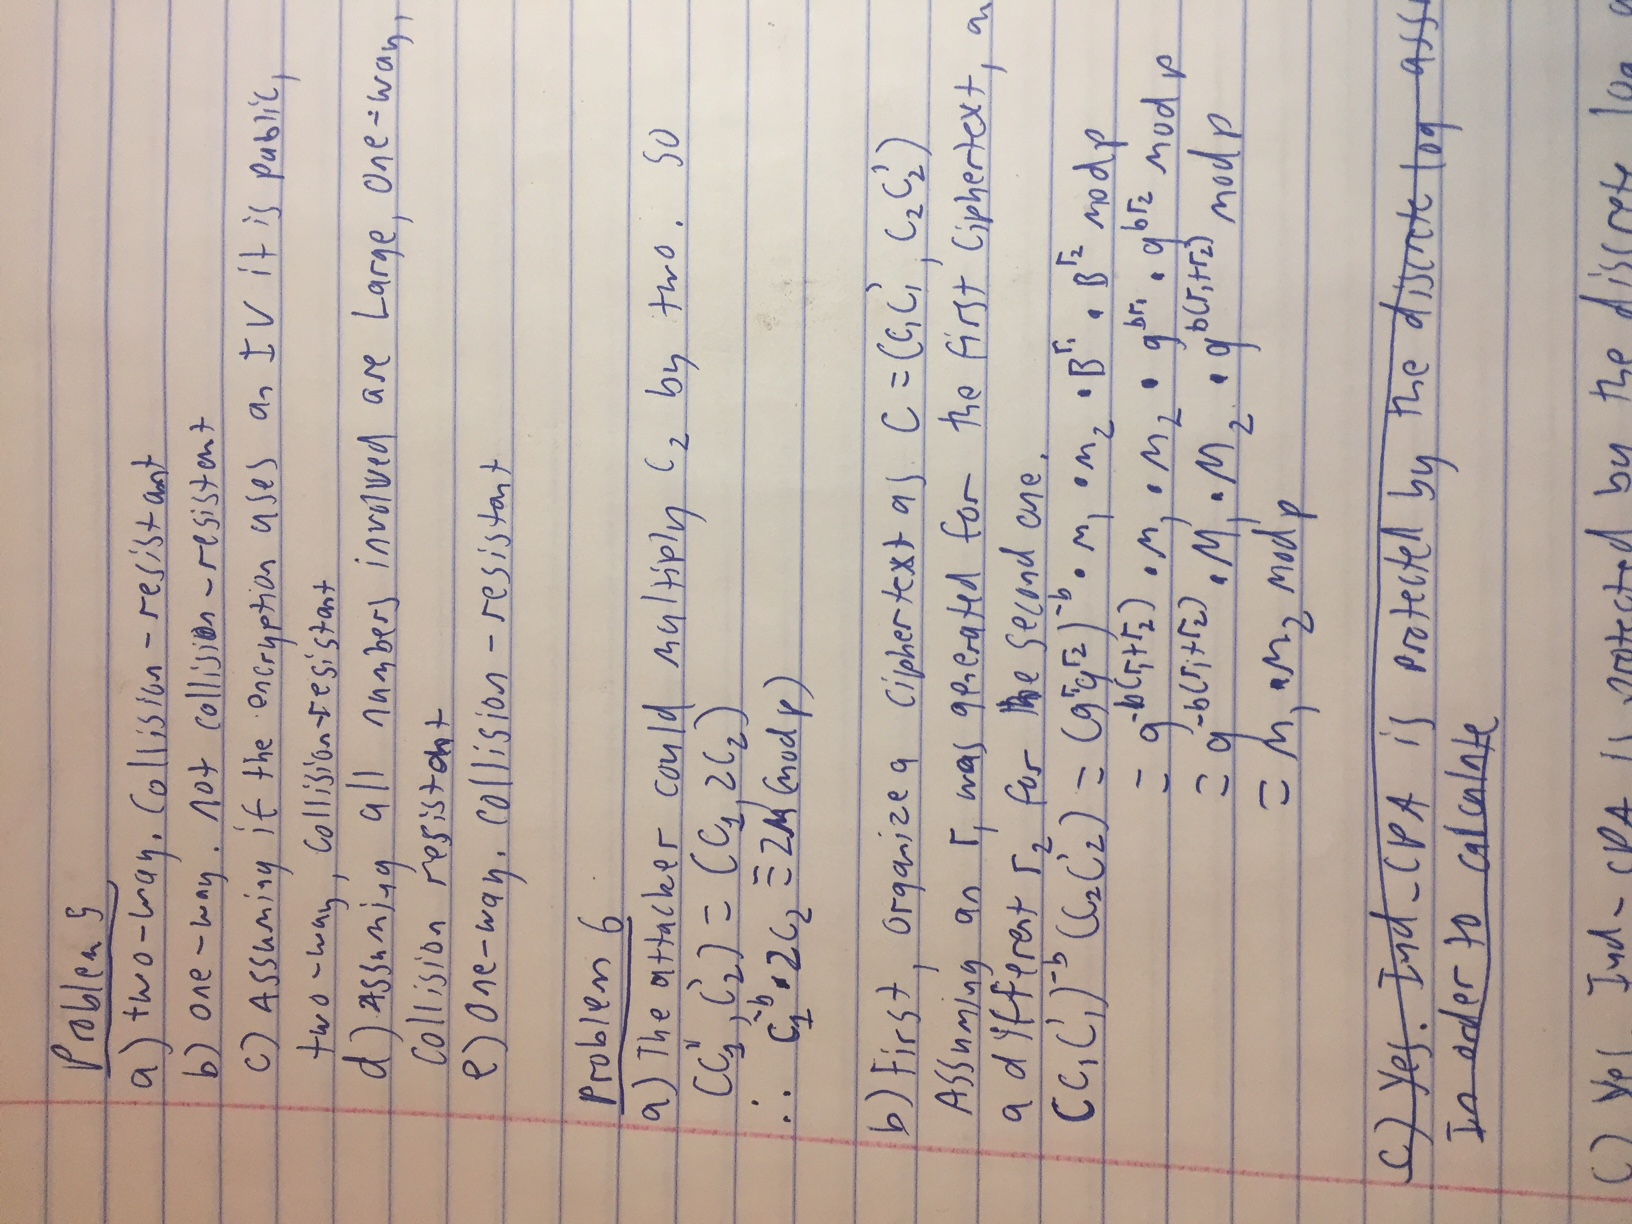 Problem 5
a) two-way. Collision-resistant
b) one-way. not collision-resistant
c) Assuming if the encryption uses an IV it is public,
two-way, collision-resistant
d) Assuming all numbers involved are Large, one-way,
Collision resistant
e) One-way. collision-resistant
Problem 6
a) The attacker could multiply C₂ by two. So
(C₁'', C₂') = (C₁, 2C₂)
∴ C₁⁻ᵇ • 2C₂ ≡ 2M (mod p)
b) First, organize a ciphertext as C = (C₁C₁', C₂C₂')
Assuming an r₁ was generated for the first ciphertext, an
a different r₂ for the second one.
(C₁C₁')⁻ᵇ (C₂C₂') = (gʳ¹gʳ²)⁻ᵇ • M₁ • M₂ • Bʳ¹ • Bʳ² mod p
= g^-b(r₁+r₂) • M₁ • M₂ • g^br₁ • g^br₂ mod p
= g^-b(r₁+r₂) • M₁ • M₂ • g^b(r₁+r₂) mod p
= M₁ • M₂ mod p
c) Yes. Ind-CPA is protected by the discrete log ass
In order to calculate
c) Yes. Ind-CPA is protected by the discrete log